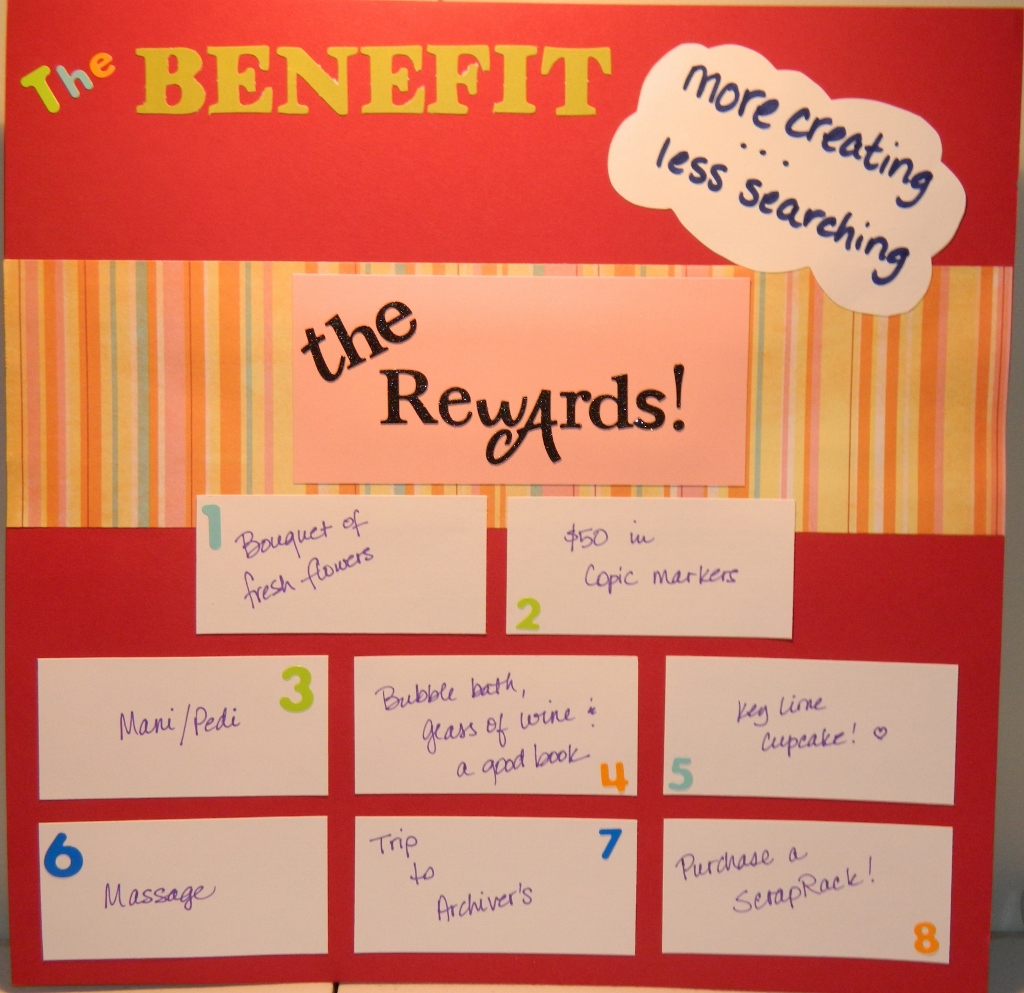 The BENEFIT
more creating
...
less searching
the
Rewards!
1
Bouquet of
fresh flowers
$50 in
Copic markers
2
3
Mani/Pedi
Bubble bath,
glass of wine &
a good book
4
Key lime
Cupcake! ♡
5
6
Massage
7
Trip
to
Archiver's
Purchase a
ScrapRack!
8